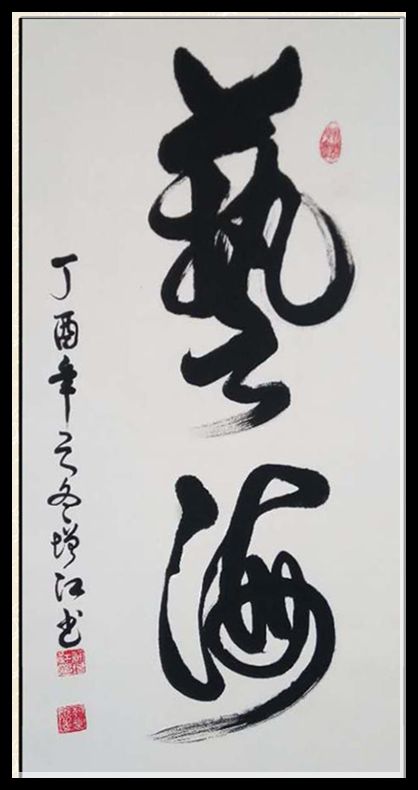 藝海
丁酉年之冬增江书